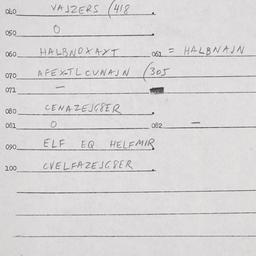 040 VAJZERS (418
050 O
060 HALBNOXAYT 061 = HALBNAJN
070 AFEXTL CVNAJN (305
071 —
080 CENAZEJG8ER
081 O 082 —
090 ELF EQ HELFMIR
100 CVELFAZEJG8ER